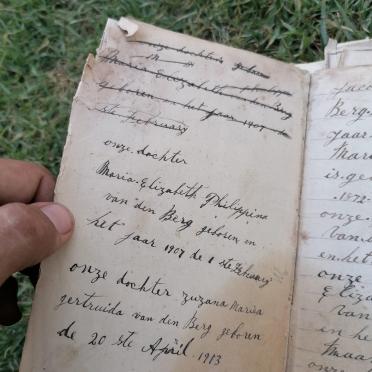 onze dochter
Maria Elizabeth Philippina
geboren in het jaar 1907 de
1 ste February
onze dochter
Maria Elizabeth Philippina
van den Berg geboren in
het jaar 1907 de 1 ste February
onze dochter zuzana Maria
gertruida van den Berg geboren
de 20 ste April 1913
Berg
jaar
Maria
is ge
1872
onze
van d
en het
onze
Eliza
van
en he
Maa